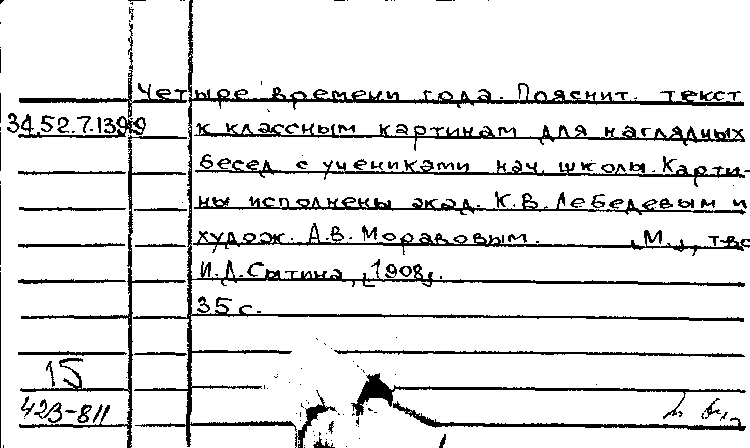 Четыре времени года. Пояснит. текст
34.52.7.1399 к классным картинам для наглядных
бесед с учениками нач. школы. Карти-
ны исполнены акад. К.В. Лебедевым и
худож. А.В. Моравовым. [М.], т-во
И.Д. Сытина, [1908].
35 с.
15
423-811